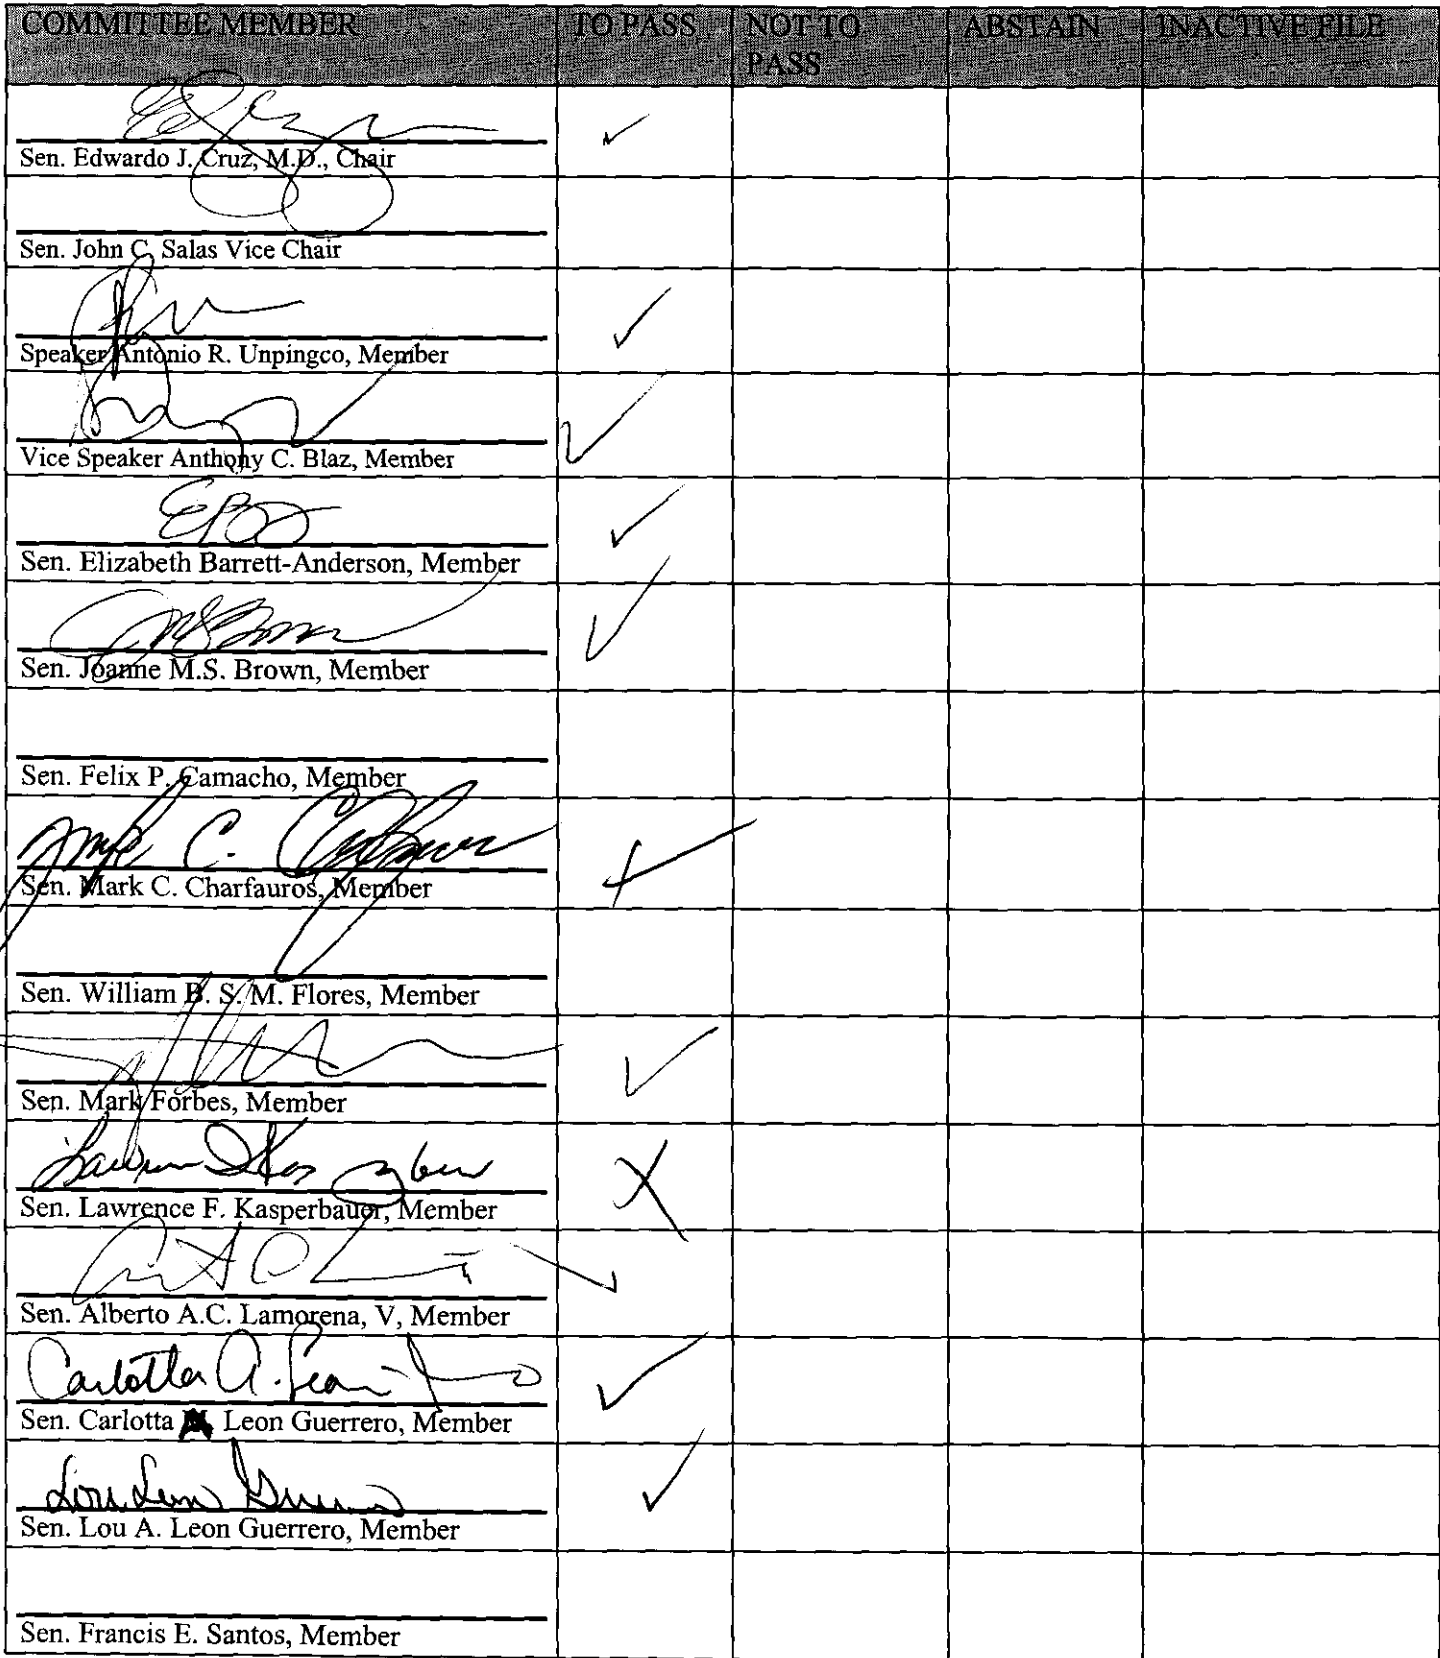 COMMITTEE MEMBER TO PASS NOT TO PASS ABSTAIN INACTIVE FILE
Sen. Edwardo J. Cruz, M.D., Chair
Sen. John C. Salas Vice Chair
Speaker Antonio R. Unpingco, Member
Vice Speaker Anthony C. Blaz, Member
Sen. Elizabeth Barrett-Anderson, Member
Sen. Joanne M.S. Brown, Member
Sen. Felix P. Camacho, Member
Sen. Mark C. Charfauros, Member
Sen. William B. S. M. Flores, Member
Sen. Mark Forbes, Member
Sen. Lawrence F. Kasperbauer, Member
Sen. Alberto A.C. Lamorena, V, Member
Carlotta A.
Sen. Carlotta Leon Guerrero, Member
Lou Leon Guerrero
Sen. Lou A. Leon Guerrero, Member
Sen. Francis E. Santos, Member